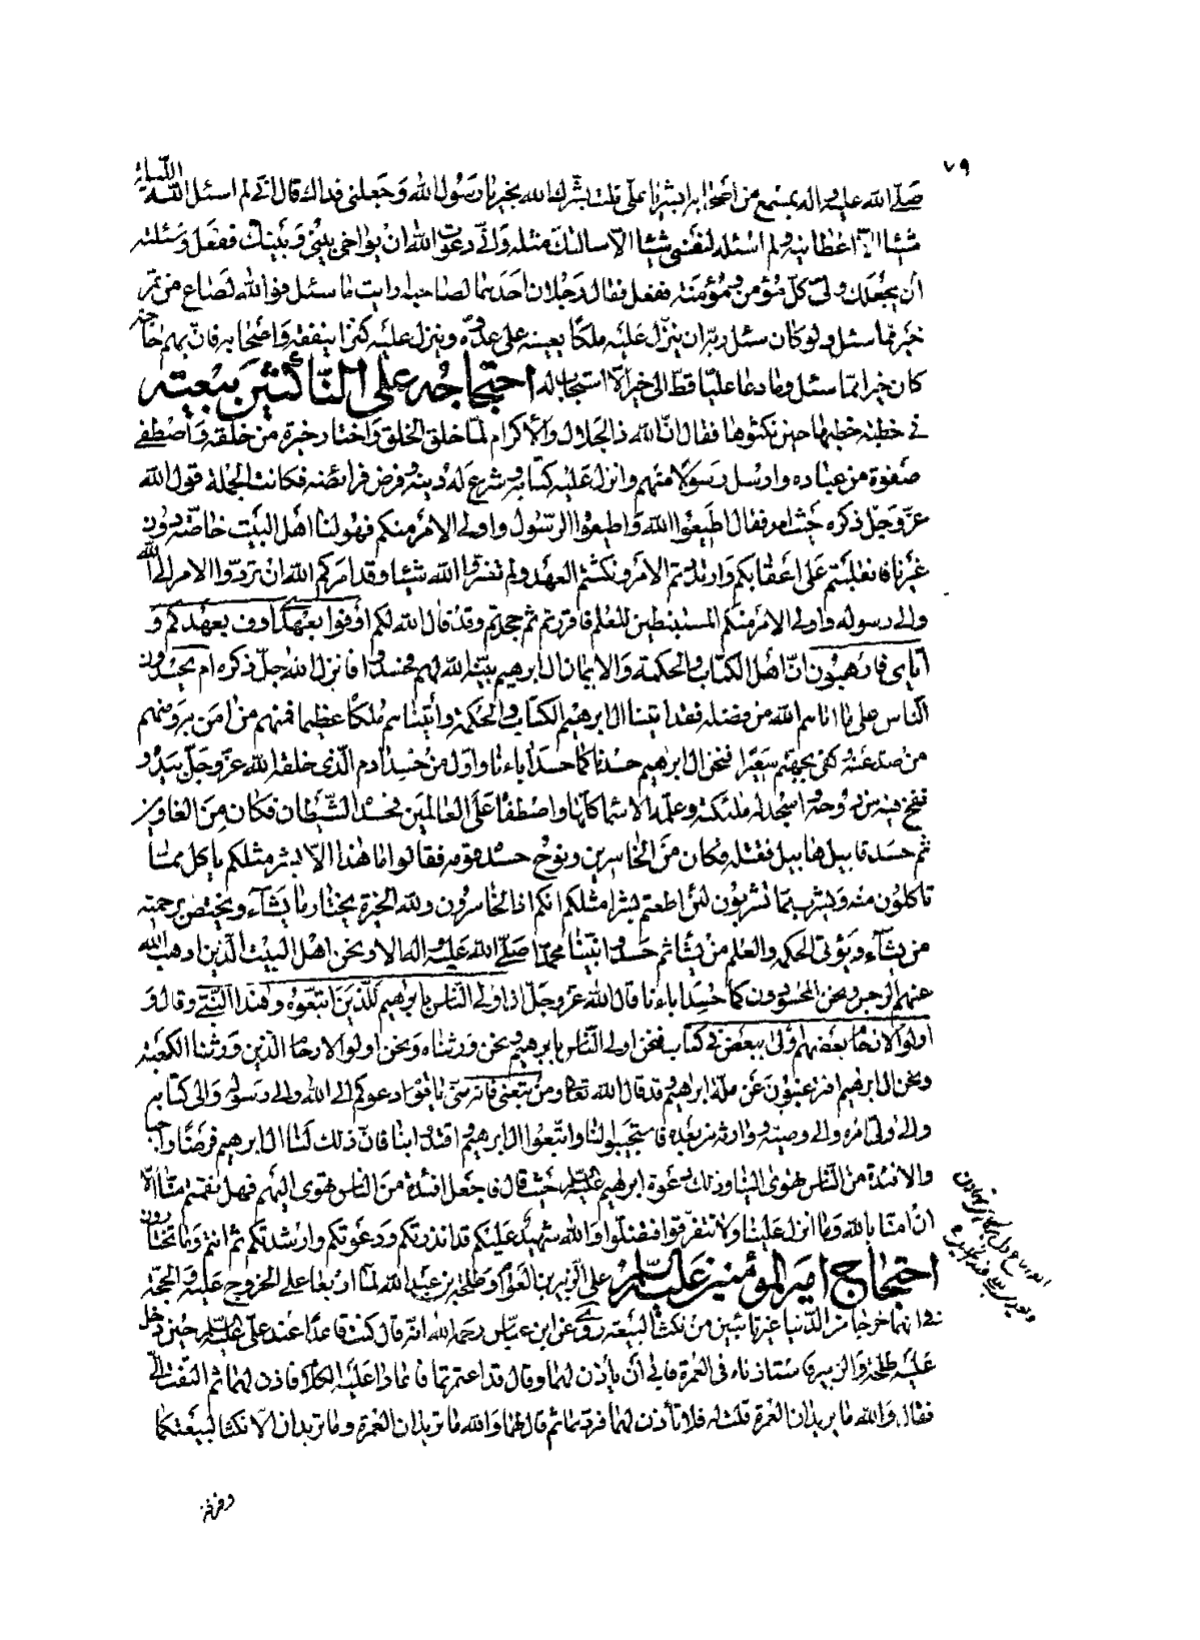 ٧٩
صلى الله عليه واله بمسمع من اصحابه ابشر يا على قلت بشرك الله بخير يا رسول الله وجعلنى فداك قال انى لم اسئل الله الليلة
شيئا الا اعطانيه ولم اسئله لنفسى شيئا الا سالت لك مثله وانى دعوت الله ان يواخى بينى وبينك ففعل وسئلته
ان يجعلك ولى كل مؤمن ومؤمنة ففعل فقال رجلان احدهما لصاحبه ارايت ما سئل فوالله لصاع من تمر
خير مما سئل ولو كان سئل ربه ان ينزل عليه ملكا يعينه على عدوه وينزل عليه كنزا ينفقه واصحابه فان بهم حاجة
كان خيرا مما سئل وما دعا عليا قط الى خير الا استجاب له احتجاجه على الناكثين بيعته
فى خطبة خطبها حين نكثوها فقال ان الله ذا الجلال والاكرام لما خلق الخلق واختار خيرة من خلقه واصطفى
صفوة من عباده وارسل رسولا منهم وانزل عليه كتابه وشرع له دينه وفرض فرائضه فكانت الجملة قول الله
عز وجل ذكره حيث امر فقال اطيعوا الله واطيعوا الرسول واولى الامر منكم فهو لنا اهل البيت خاصة دون
غيرنا فانقلبتم على اعقابكم وارتددتم ونقضتم الامر ونكثتم العهد ولم تضروا الله شيئا وقد امركم الله ان تردوا الامر الى الله
والى رسوله واولى الامر منكم المستنبطين للعلم فاقررتم ثم جحدتم وقد قال الله لكم اوفوا بعهدى اوف بعهدكم و
اياى فارهبون ان اهل الكتاب والحكمة والايمان ال ابرهيم بينه الله لهم فحسدوا فانزل الله جل ذكره ام يحسدون
الناس على ما اتاهم الله من فضله فقد اتينا ال ابرهيم الكتاب والحكمة واتيناهم ملكا عظيما فمنهم من امن به ومنهم
من صد عنه وكفى بجهنم سعيرا فنحن ال ابرهيم حسدنا كما حسد اباءنا واول من حسد ادم الذى خلقه الله عز وجل بيده و
نفخ فيه من روحه واسجد له ملئكته وعلمه الاسماء كلها واصطفاه على العالمين فحسده الشيطان فكان من الغاوين
ثم حسد قابيل هابيل فقتله فكان من الخاسرين ونوح حسده قومه فقالوا ما هذا الا بشر مثلكم ياكل مما
تاكلون منه ويشرب مما تشربون ولئن اطعتم بشرا مثلكم انكم اذا لخاسرون ولله الخيرة يختار ما يشاء ويختص برحمته
من يشاء ويؤتى الحكمة والعلم من يشاء ثم حسدوا نبينا محمدا صلى الله عليه واله الا ونحن اهل البيت الذين اذهب الله
عنهم الرجس ونحن المحسودون كما حسد اباءنا قال الله عز وجل ان اولى الناس بابرهيم للذين اتبعوه وهذا النبى وقال و
اولوا الارحام بعضهم اولى ببعض فى كتاب الله فنحن اولى الناس بابرهيم ونحن ورثناه ونحن اولوا الارحام الذين ورثنا الكعبة
ونحن ال ابرهيم افترغبون عن ملة ابرهيم وقد قال الله تعالى ومن تبعنى فانه منى يا قوم ادعوكم الى الله والى رسوله والى كتابه
والى ولى امره والى وصيه ووارثه من بعده فاستجيبوا لنا واتبعوا ال ابرهيم واقتدوا بنا فان ذلك لنا ال ابرهيم فرضا واجبا
والافئدة من الناس تهوى الينا وذلك دعوة ابرهيم عليه السلم حيث قال فاجعل افئدة من الناس تهوى اليهم فهل نقمتم منا الا
ان امنا بالله وما انزل علينا ولا تتفرقوا فتضلوا والله شهيد عليكم قد انذرتكم ودعوتكم وارشدتكم ثم انتم وما تختارون
احتجاج امير المؤمنين عليه السلم على الزبير بن العوام وطلحة بن عبيد الله لما ازمعا على الخروج عليه والحجة
فى انهما خرجا من الدنيا غير تائبين من نكث البيعة روى عن ابن عباس رحمه الله انه قال كنت قاعدا عند على عليه السلم حين دخل
عليه طلحة والزبير فاستاذناه فى العمرة فابى ان ياذن لهما وقال قد اعتمرتما فاعادا عليه الكلام فاذن لهما ثم التفت الى
فقال والله ما يريدان العمرة قلت له فلا تأذن لهما فردهما ثم قال لهما والله ما تريدان العمرة وما تريدان الا نكثا لبيعتكما